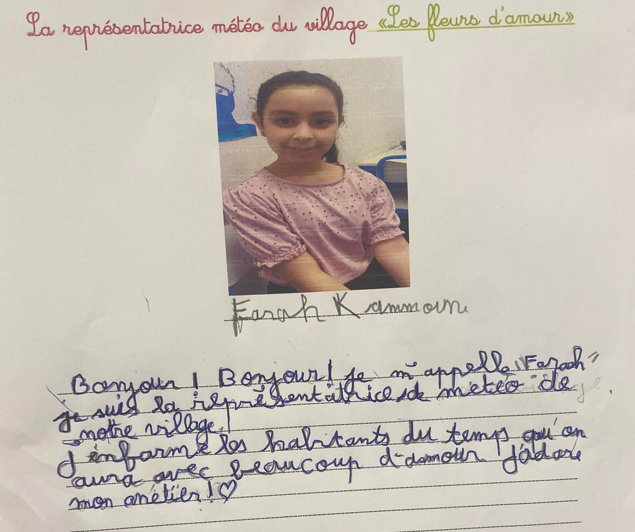 La représentatrice météo du village «Les fleurs d'amour»
Farah Kammoun
Bonjour ! Bonjour ! je m'appelle "Farah"
Je suis la représentatrice de météo de
notre village.
J'informe les habitants du temps qu'on
aura avec beaucoup d'amour J'adore
mon métier ! ♡